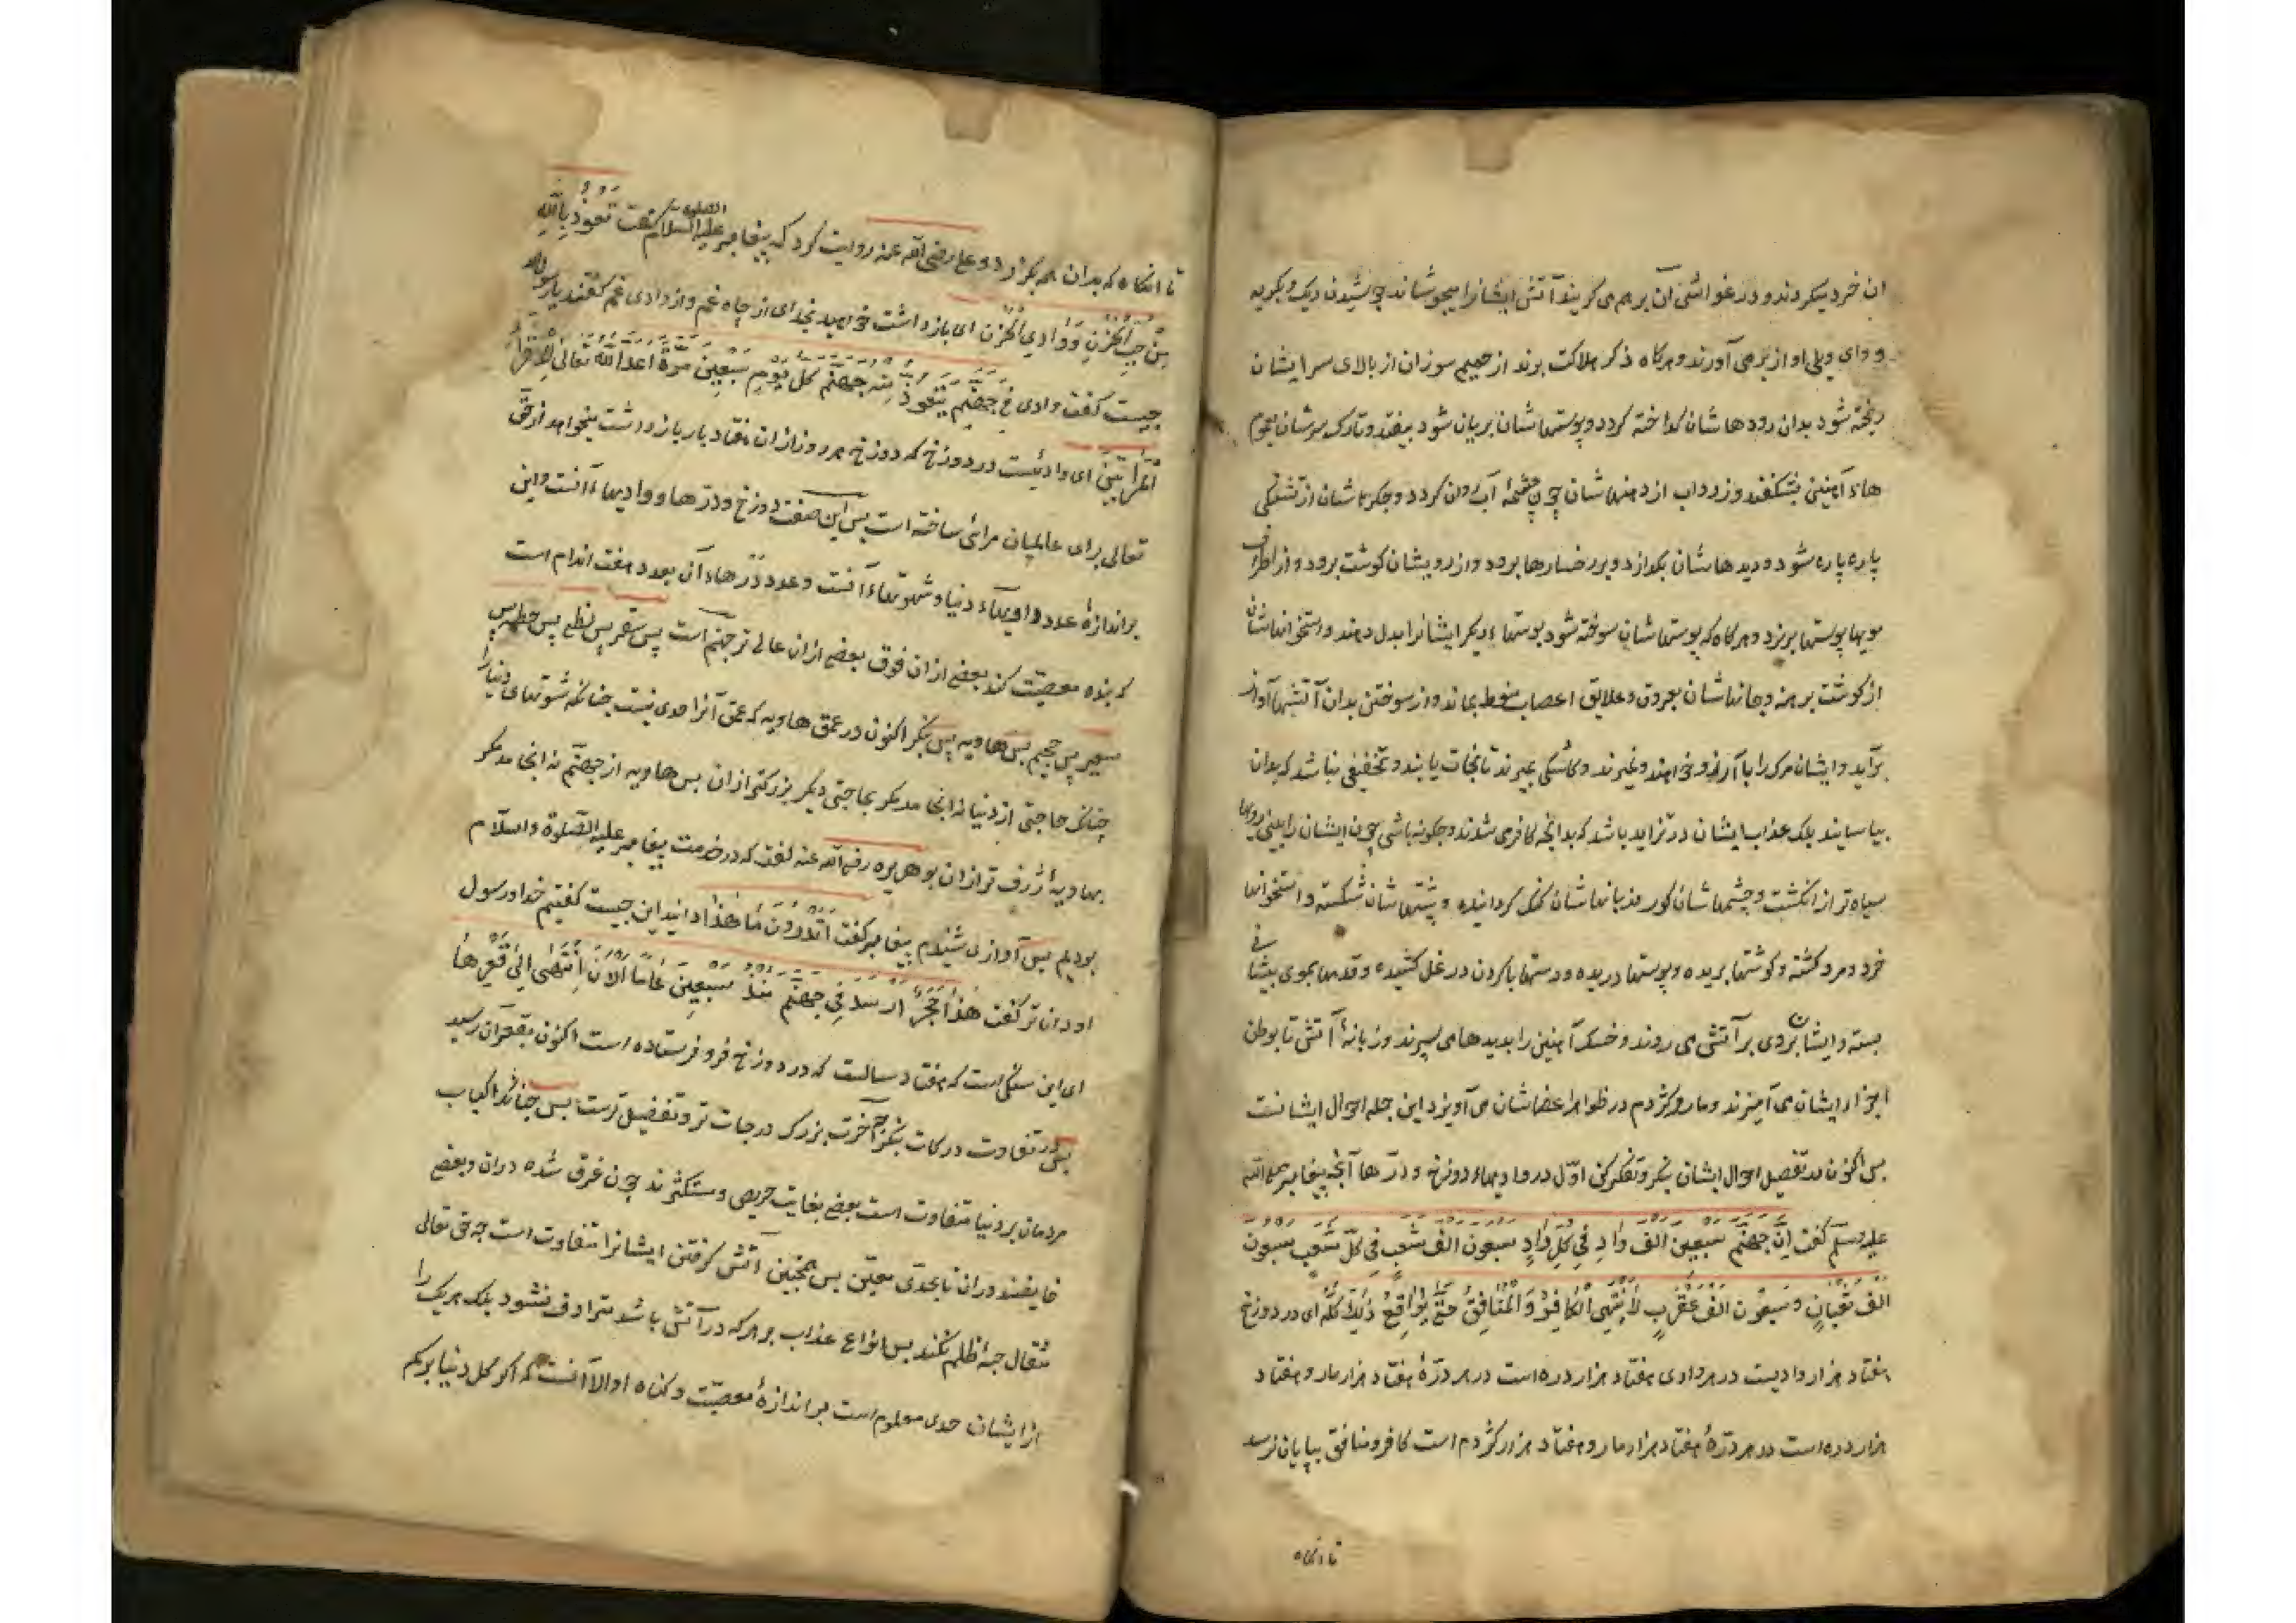 ان خرد میکردند و در غواشی آن برهم می کریند آتش ایشانرا میجوشاند چون جوشیدن دیک و بکریه
و وای ویلی او از بر می آورند و هرکاه ذکر هلاکت برند از حمیم سوزان از بالای سر ایشان
ریخته شود بدان رودهاشان کداخته کردد و پوستهاشان بریان شود بیفتد و تارک سرشان بعمود
هاء آهنین بشکفند و زرداب از دهنهاشان چون چشمهٔ آب روان کردد و جکرهاشان از تشنکی
پاره پاره شود و دیدهاشان بکدازد و بر رخسارها برود و از رویشان کوشت برود و از اطراف
مویها پوستها بریزد و هرکاه که پوستهاشان سوخته شود پوستهاء دیکر ایشانرا بدل دهند و استخوانهاشان
از کوشت برهنه و جانهاشان بعروق و علایق اعصاب منوط بماند و از سوختن بدان آتشها آواز
برآید و ایشان مرک را بآرزو خواهند و نمیرند و کاشکی بمیرند تا نجات یابند و تخفیفی نباشد که بدان
بیاسایند بلک عذاب ایشان در تزاید باشد که بدانچه کافر می شدند و چکونه باشی چون ایشان را بینی رویها
سیاه تر از انکشت و چشمهاشان کور و زبانهاشان کنک کردانیده و پشتهاشان شکسته و استخوانها
خرد و مرد کشته و کوشتها بریده و پوستها دریده و دستها با کردن در غل کشیده و قدمها بموی پیشانی
بسته و ایشان بروی بر آتش می روند و خسک آهنین را بدیدها می سپرند و زبانهٔ آتش تا بوطن
اجزاء ایشان می آمیزند و مار و کژدم در ظواهر اعضاشان می آویزد این جمله احوال ایشانست
بس اکنون در تفصیل احوال ایشان بنکر و تفکر کن اوّل در وادیهاء دوزخ و درّها آنچه پیغامبر صلی الله
علیه وسلّم کفت اِنَّ جَهَنَّمَ سَبْعِینَ اَلْفَ وَادٍ فِی کُلِّ وَادٍ سَبْعُونَ اَلْفَ شَعْبٍ فِی کُلِّ شَعْبٍ سَبْعُونَ
اَلْفَ ثُعْبَانٍ وَ سَبْعُونَ اَلْفَ عَقْرَبٍ لَا یَنْتَهِی الْکَافِرُ وَالْمُنَافِقُ حَتَّی یُوَاقِعُ ذَلِکَ کُلَّهُ ای در دوزخ
هفتاد هزار وادیست در هر وادی هفتاد هزار دره است در هر درّهٔ هفتاد هزار مار و هفتاد
هزار دره است در هر درّهٔ هفتاد هزار مار و هفتاد هزار کژدم است کافر و منافق بپایان نرسد
تا انکاه
تا انکاه که بدان همه بکذرد و علی رضی الله عنه روایت کرد که پیغامبر علیه الصلوة السلام کفت تَعَوَّذُوا بِاللهِ
مِنْ جُبِّ الْحُزْنِ وَ وَادِی الْحُزْنِ ای بازداشت خواهید بخدای از چاه غم و از وادی غم کفتند یا رسول الله
چیست کفت وادی فِی جَهَنَّمَ یَتَعَوَّذُ مِنْهُ جَهَنَّمُ کُلَّ یَوْمٍ سَبْعِینَ مَرَّةً اَعَدَّ اللهُ تَعَالَی لِلْقُرَّاءِ
الْمُرَائِینَ ای وادئیست در دوزخ که دوزخ هر روز ازان هفتاد بار بازداشت میخواهد از حق
تعالی برای عالمیان مرائی ساخته است پس این صفت دوزخ و درّها و وادیهاء آنست و این
براندازهٔ عدد وادیهاء دنیا و شهوتهاء آنست و عدد درّهاء آن بعدد هفت اندام است
که بنده معصیّت کند بعضی ازان فوق بعضی ازان عالی تر جهنّم است پس سَقَر پس لظی پس حطمه پس
سعیر پس جحیم پس هاویه پس بنکر اکنون در عمق هاویه که عمق آنرا حدی نیست چنانکه شهوتهای دنیا را
چنانکه حاجتی از دنیا نه انجامد مکر بحاجتی دیکر بزرکتر ازان پس هاویه از جهنّم نه انجامد مکر
بهاویهٔ ژرف تر ازان بو هریره رضی الله عنه کفت که در خدمت پیغامبر علیه الصّلوة والسّلام
بودیم پس آوازی شنیدم پیغامبر کفت اَتَدْرُونَ مَا هَذَا دانید این چیست کفتیم خدا و رسول
او داناتر کفت هَذَا حَجَرٌ اُرْسِلَ فِی جَهَنَّمَ مُنْذُ سَبْعِینَ عَامًا اَلْآنَ اِنْتَهَی اِلَی قَعْرِهَا
ای این سنکی است که هفتاد سالست که در دوزخ فرو فرستاده است اکنون بقعر آن رسید
پس در تفاوت درکات بنکر آخرت بزرک درجات تر و تفضیل ترست پس چنانکه اکباب
مردمان بر دنیا متفاوت است بعضی بغایت حریص و مستکثرند چون غرق شده دران و بعضی
خایضند دران تا بحدّی معیّن پس همچنین آتش کرفتن ایشانرا متفاوت است چه حق تعالی
مثقال حبّهٔ ظلم نکند پس انواع عذاب بر هرکه در آتش باشد مترادف نشود بلک هریک را
از ایشان حدی معلوم است براندازهٔ معصیّت و کناه او الا آنست که اکر کل دنیا بر کم